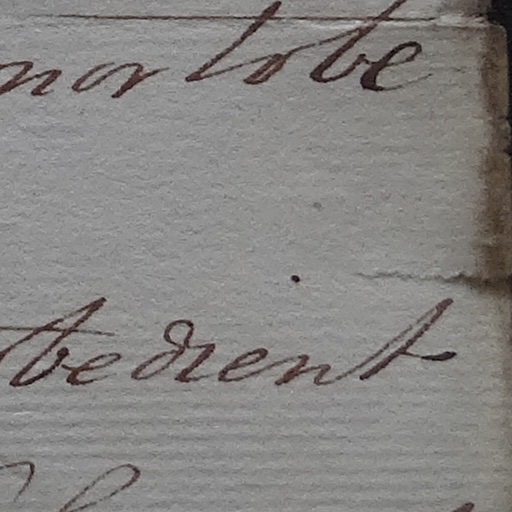 nor to be
bedient